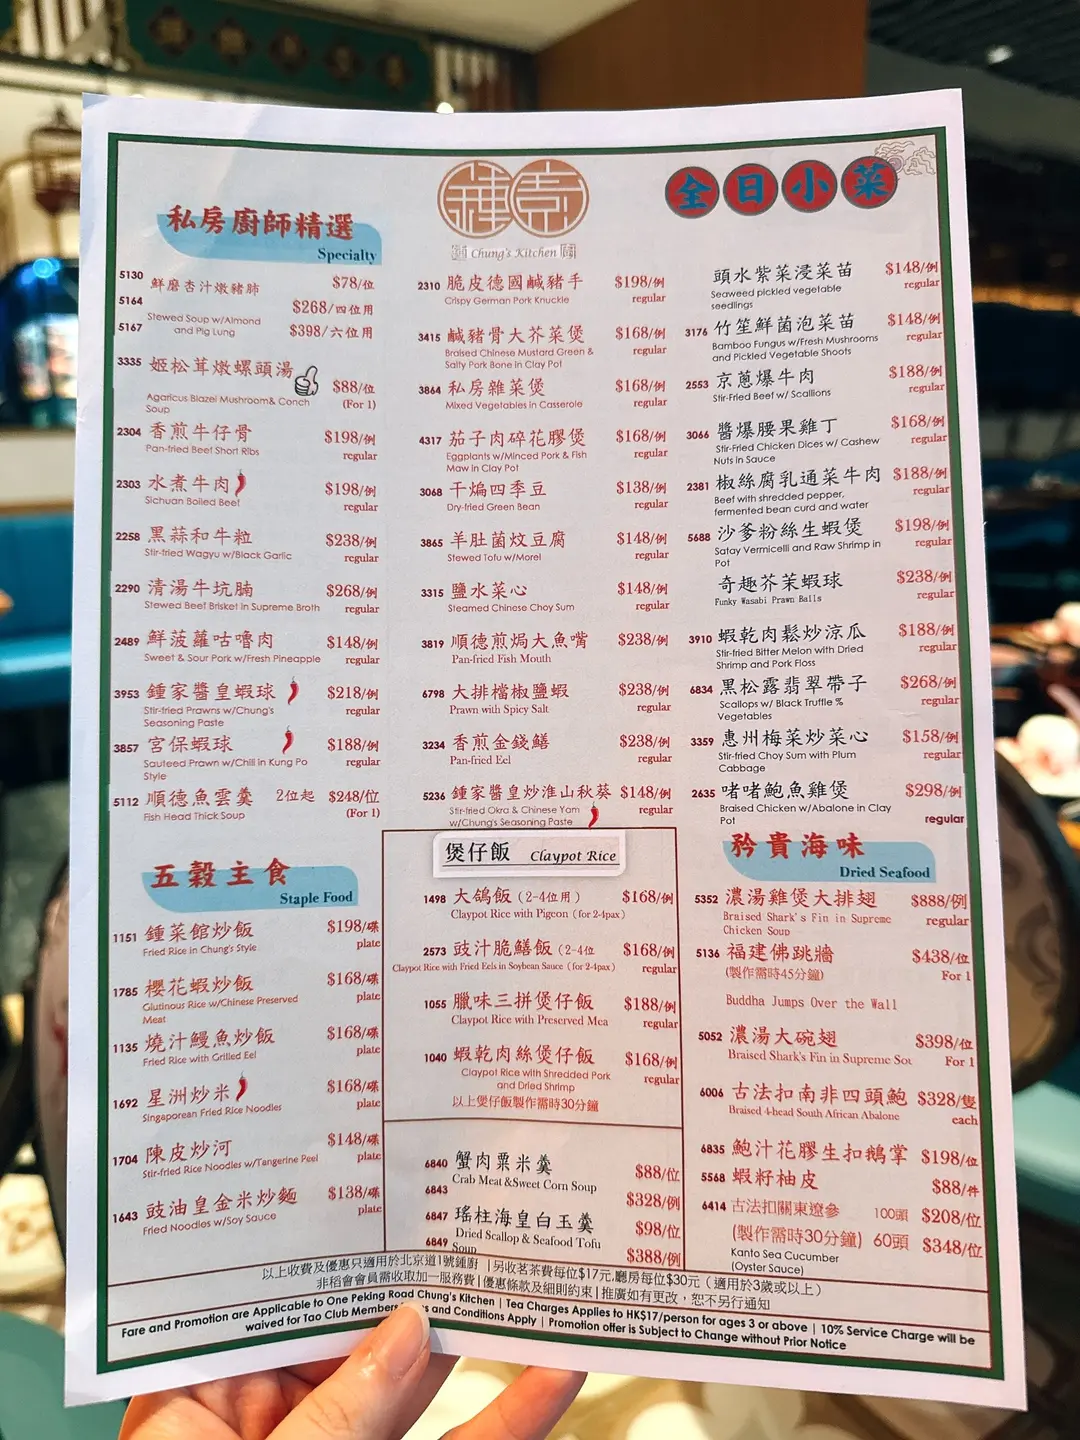 鍾菜
Chung's Kitchen
全日小菜
私房廚師精選
Specialty
5130 鮮磨杏汁燉豬肺 $78/位
5164 $268/四位用
Stewed Soup w/Almond
5167 and Pig Lung $398/六位用
3335 姬松茸燉螺頭湯 $88/位
Agaricus Blazei Mushroom& Conch (For 1)
Soup
2304 香煎牛仔骨 $198/例
Pan-fried Beef Short Ribs regular
2303 水煮牛肉 $198/例
Sichuan Boiled Beef regular
2258 黑蒜和牛粒 $238/例
Stir-fried Wagyu w/Black Garlic regular
2290 清湯牛坑腩 $268/例
Stewed Beef Brisket in Supreme Broth regular
2489 鮮菠蘿咕嚕肉 $148/例
Sweet & Sour Pork w/Fresh Pineapple regular
3953 鍾家醬皇蝦球 $218/例
Stir-fried Prawns w/Chung's regular
Seasoning Paste
3857 宮保蝦球 $188/例
Sauteed Prawn w/Chili in Kung Po regular
Style
5112 順德魚雲羹 2位起 $248/位
Fish Head Thick Soup (For 1)
五穀主食
Staple Food
1151 鍾菜館炒飯 $198/碟
Fried Rice in Chung's Style plate
1785 櫻花蝦炒飯 $168/碟
Glutinous Rice w/Chinese Preserved plate
Meat
1135 燒汁鰻魚炒飯 $168/碟
Fried Rice with Grilled Eel plate
1692 星洲炒米 $168/碟
Singaporean Fried Rice Noodles plate
1704 陳皮炒河 $148/碟
Stir-fried Rice Noodles w/Tangerine Peel plate
1643 豉油皇金米炒麵 $138/碟
Fried Noodles w/Soy Sauce plate
2310 脆皮德國鹹豬手 $198/例
Crispy German Pork Knuckle regular
3415 鹹豬骨大芥菜煲 $168/例
Braised Chinese Mustard Green & regular
Salty Pork Bone in Clay Pot
3864 私房雜菜煲 $168/例
Mixed Vegetables in Casserole regular
4317 茄子肉碎花膠煲 $168/例
Eggplants w/Minced Pork & Fish regular
Maw in Clay Pot
3068 干煸四季豆 $138/例
Dry-fried Green Bean regular
3865 羊肚菌炆豆腐 $148/例
Stewed Tofu w/Morel regular
3315 鹽水菜心 $148/例
Steamed Chinese Choy Sum regular
3819 順德煎焗大魚嘴 $238/例
Pan-fried Fish Mouth
6798 大排檔椒鹽蝦 $238/例
Prawn with Spicy Salt regular
3234 香煎金錢鱔 $238/例
Pan-fried Eel regular
5236 鍾家醬皇炒淮山秋葵 $148/例
Stir-fried Okra & Chinese Yam regular
w/Chung's Seasoning Paste
煲仔飯 Claypot Rice
1498 大鴿飯 (2-4位用) $168/例
Claypot Rice with Pigeon (for 2-4pax)
2573 豉汁脆鱔飯 (2-4位 $168/例
Claypot Rice with Fried Eels in Soybean Sauce (for 2-4pax) regular
1055 臘味三拼煲仔飯 $188/例
Claypot Rice with Preserved Mea regular
1040 蝦乾肉絲煲仔飯 $168/例
Claypot Rice with Shredded Pork regular
and Dried Shrimp
以上煲仔飯製作需時30分鐘
6840 蟹肉粟米羹 $88/位
Crab Meat &Sweet Corn Soup
6843 $328/例
6847 瑤柱海皇白玉羹 $98/位
Dried Scallop & Seafood Tofu
6849 Soup $388/例
頭水紫菜浸菜苗 $148/例
Seaweed pickled vegetable regular
seedlings
3176 竹笙鮮菌泡菜苗 $148/例
Bamboo Fungus w/Fresh Mushrooms regular
and Pickled Vegetable Shoots
2553 京蔥爆牛肉 $188/例
Stir-Fried Beef w/ Scallions regular
3066 醬爆腰果雞丁 $168/例
Stir-Fried Chicken Dices w/ Cashew regular
Nuts in Sauce
2381 椒絲腐乳通菜牛肉 $188/例
Beef with shredded pepper, regular
fermented bean curd and water
5688 沙爹粉絲生蝦煲 $198/例
Satay Vermicelli and Raw Shrimp in regular
Pot
奇趣芥茉蝦球 $238/例
Funky Wasabi Prawn Balls regular
3910 蝦乾肉鬆炒涼瓜 $188/例
Stir-fried Bitter Melon with Dried regular
Shrimp and Pork Floss
6834 黑松露翡翠帶子 $268/例
Scallops w/ Black Truffle % regular
Vegetables
3359 惠州梅菜炒菜心 $158/例
Stir-fried Choy Sum with Plum regular
Cabbage
2635 啫啫鮑魚雞煲 $298/例
Braised Chicken w/Abalone in Clay
Pot regular
矜貴海味
Dried Seafood
5352 濃湯雞煲大排翅 $888/例
Braised Shark's Fin in Supreme regular
Chicken Soup
5136 福建佛跳牆 $438/位
(製作需時45分鐘) For 1
Buddha Jumps Over the Wall
5052 濃湯大碗翅 $398/位
Braised Shark's Fin in Supreme Sou For 1
6006 古法扣南非四頭鮑 $328/隻
Braised 4-head South African Abalone each
6835 鮑汁花膠生扣鵝掌 $198/位
5568 蝦籽柚皮 $88/件
6414 古法扣關東遼參 100頭 $208/位
(製作需時30分鐘) 60頭 $348/位
Kanto Sea Cucumber
(Oyster Sauce)
以上收費及優惠只適用於北京道1號鍾廚 |另收茗茶費每位$17元,廳房每位$30元 (適用於3歲或以上)
非稻會會員需收取加一服務費|優惠條款及細則約束|推廣如有更改，恕不另行通知
Fare and Promotion are Applicable to One Peking Road Chung's Kitchen | Tea Charges Applies to HK$17/person for ages 3 or above | 10% Service Charge will be
waived for Tao Club Members and Conditions Apply | Promotion offer is Subject to Change without Prior Notice